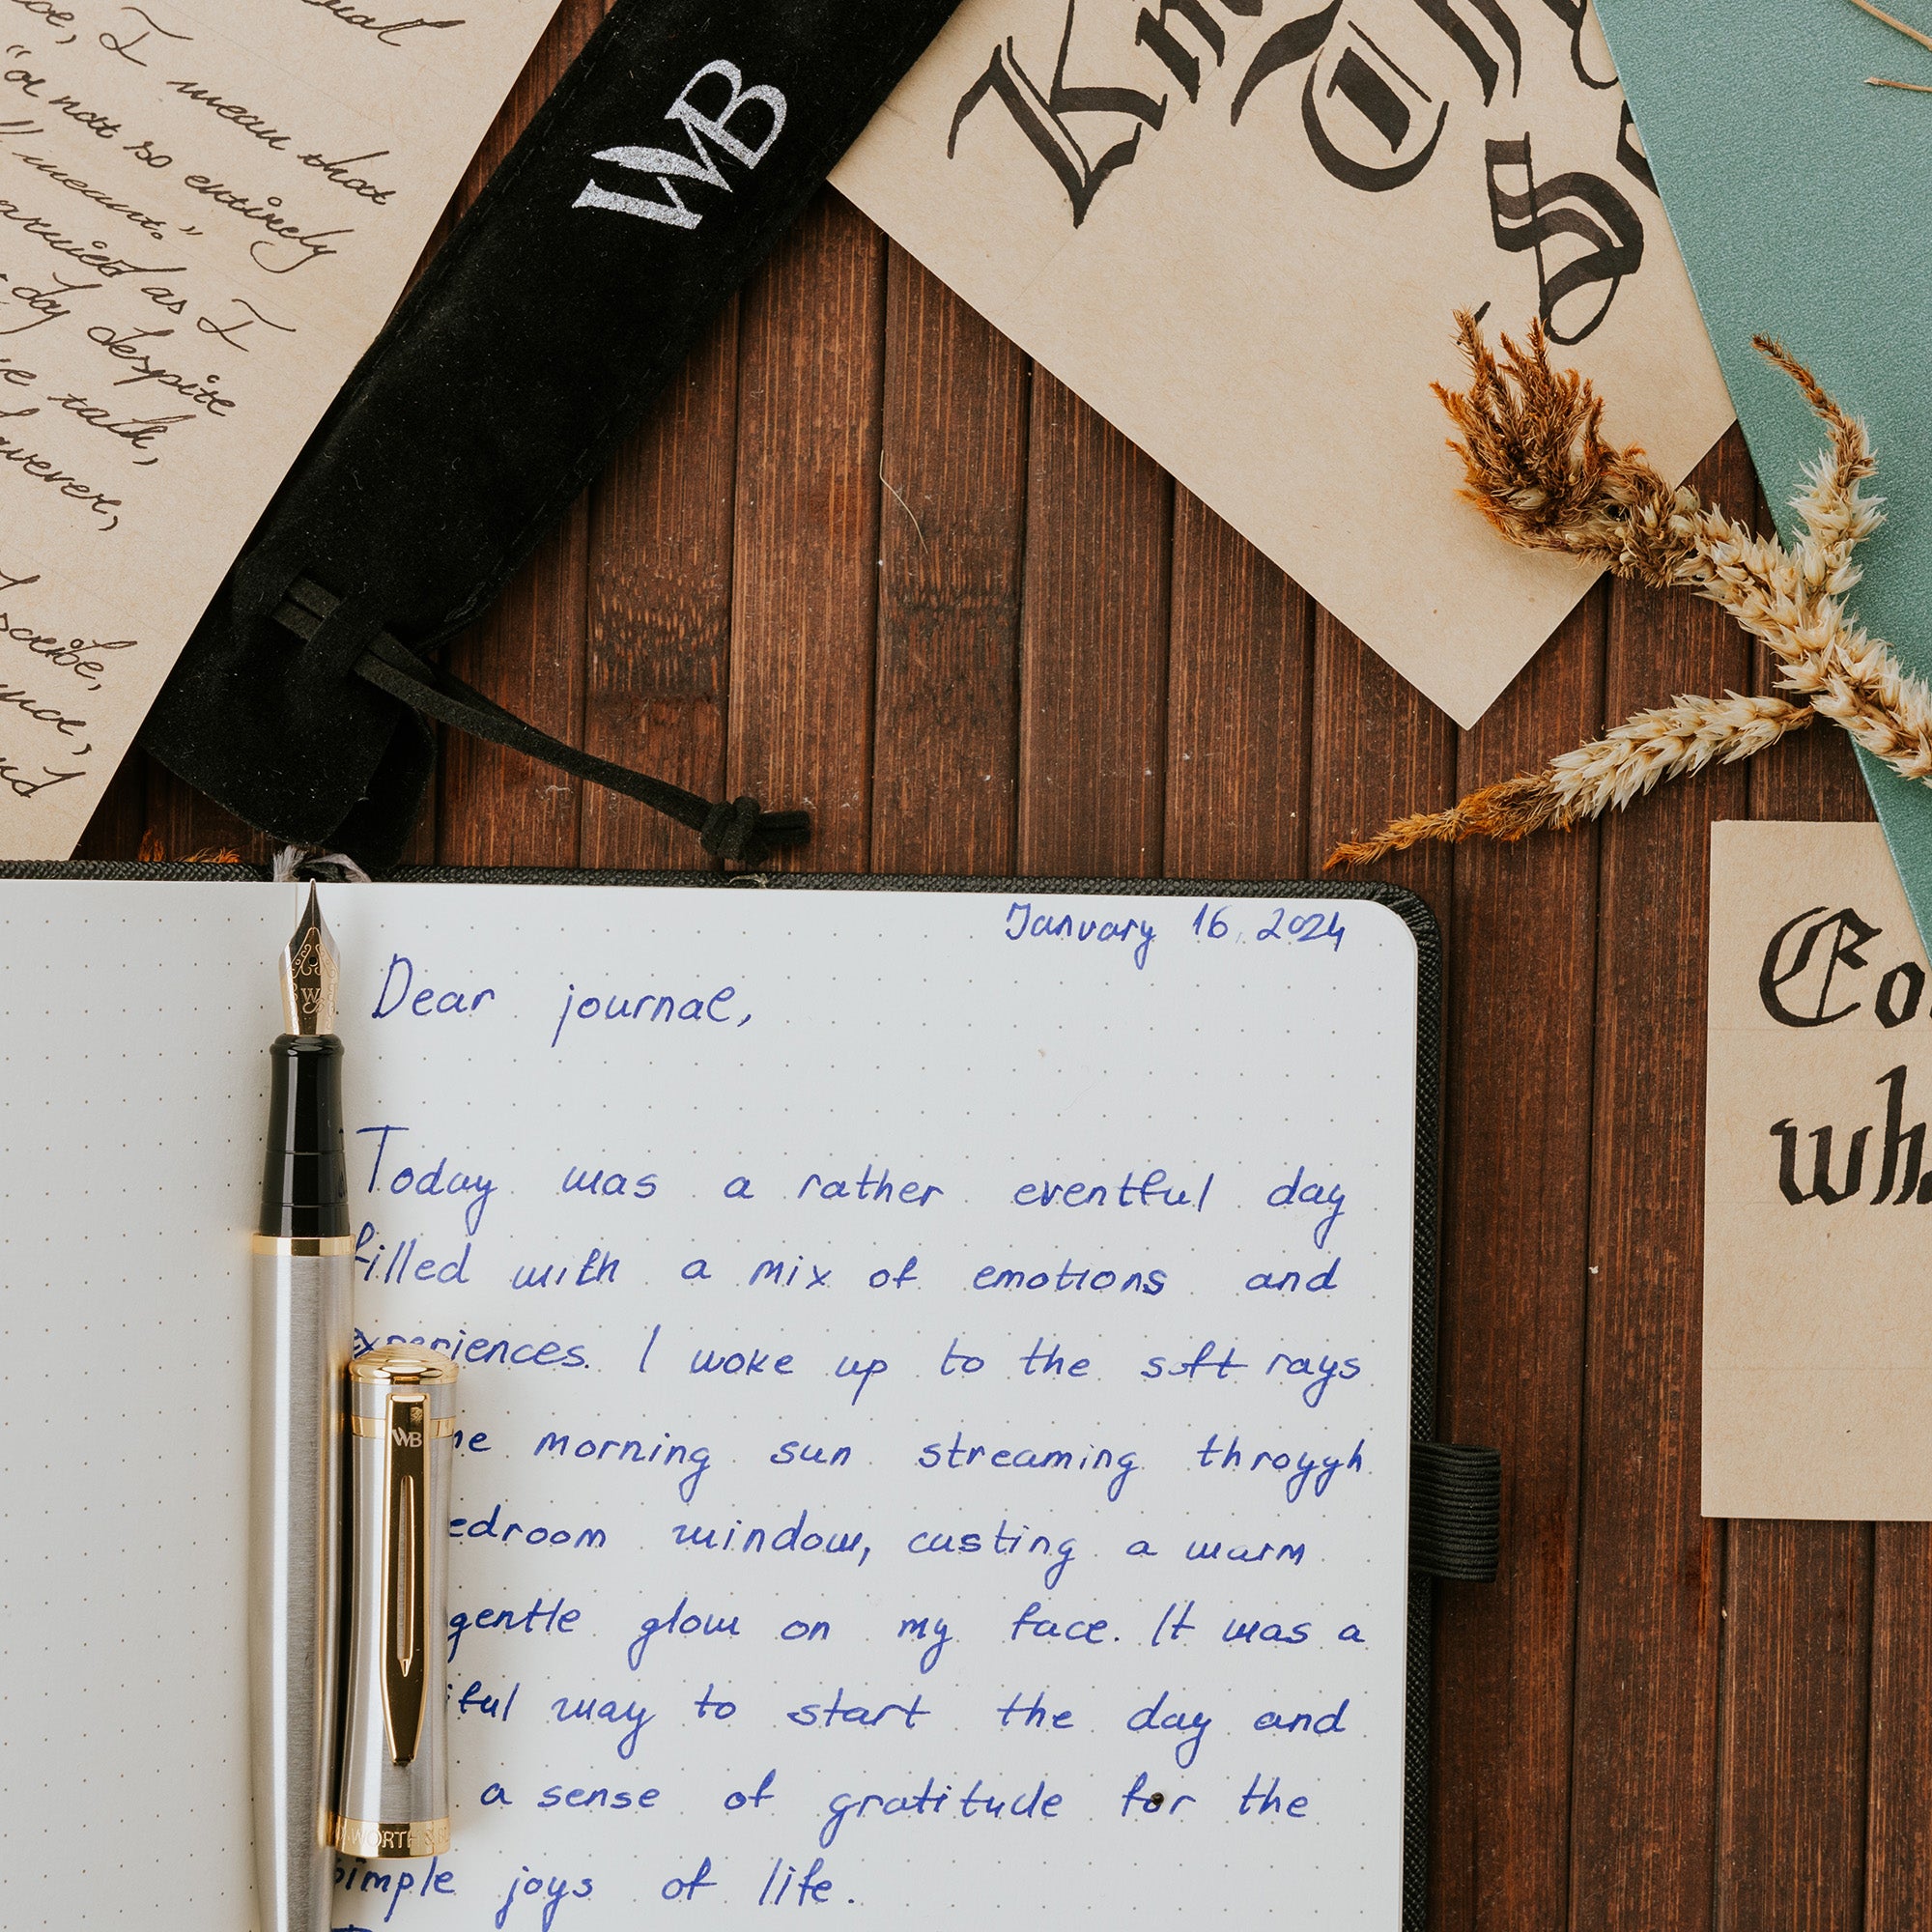 I mean that
"a not so entirely
meant."
as I
day despite
talk,
WB
Kn
Th
S
Eo
wh
January 16, 2024
Dear journal,
Today was a rather eventful day
filled with a mix of emotions and
experiences. I woke up to the soft rays
morning sun streaming throygh
window, casting a warm
gentle glow on my face. It was a
way to start the day and
a sense of gratitude for the
simple joys of life.
W
WB
WORTH &